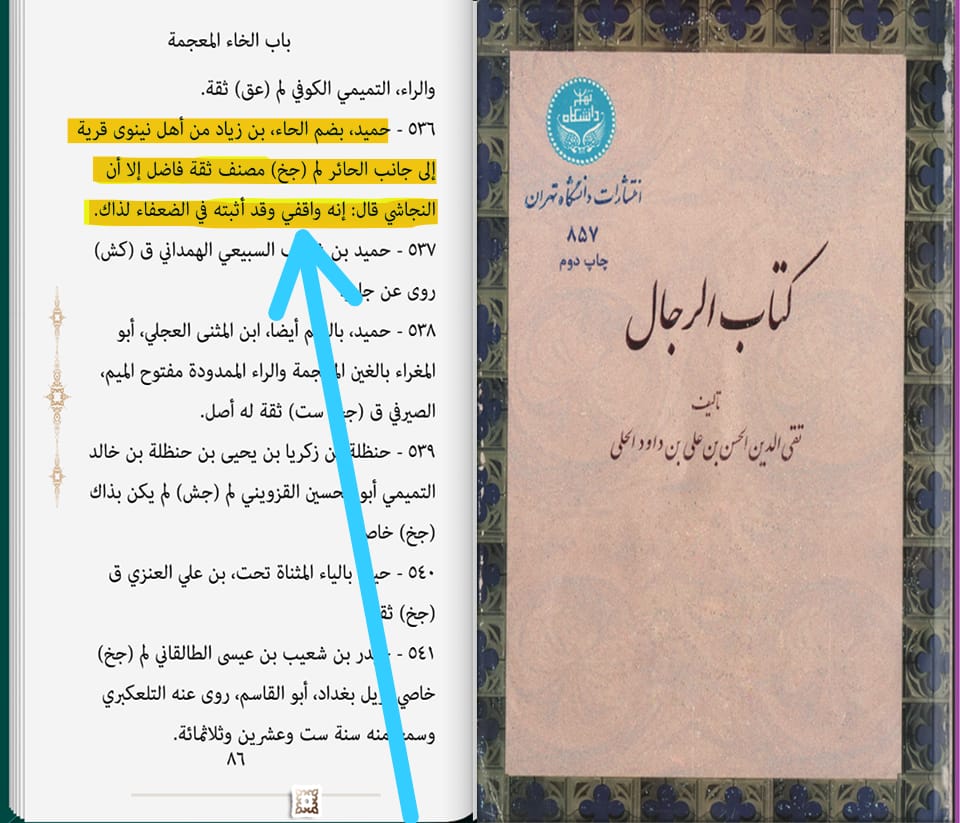 باب الخاء المعجمة
والراء، التميمي الكوفي لم (عق) ثقة.
٥٣٦ - حميد، بضم الحاء، بن زياد من أهل نينوى قرية
إلى جانب الحائر لم (جخ) مصنف ثقة فاضل إلا أن
النجاشي قال: إنه واقفي وقد أثبته في الضعفاء لذاك.
٥٣٧ - حميد بن السبيعي الهمداني ق (كش)
روى عن
٥٣٨ - حميد، أيضا، ابن المثنى العجلي، أبو
المغراء بالغين والراء الممدودة مفتوح الميم،
الصيرفي ق ست) ثقة له أصل.
٥٣٩ - حنظلة زكريا بن يحيى بن حنظلة بن خالد
التميمي القزويني لم (جش) لم يكن بذاك
(جخ)
٥٤٠ - بالياء المثناة تحت، بن علي العنزي ق
(جخ)
٥٤١ - بن شعيب بن عيسى الطالقاني لم (جخ)
خاصي بغداد، أبو القاسم، روى عنه التلعكبري
منه سنة ست وعشرين وثلاثمائة.
٨٦
دانشگاه
انتشارات دانشگاه تهران
٨٥٧
چاپ دوم
كتاب الرجال
تأليف
تقى الدين الحسن بن على بن داود الحلى